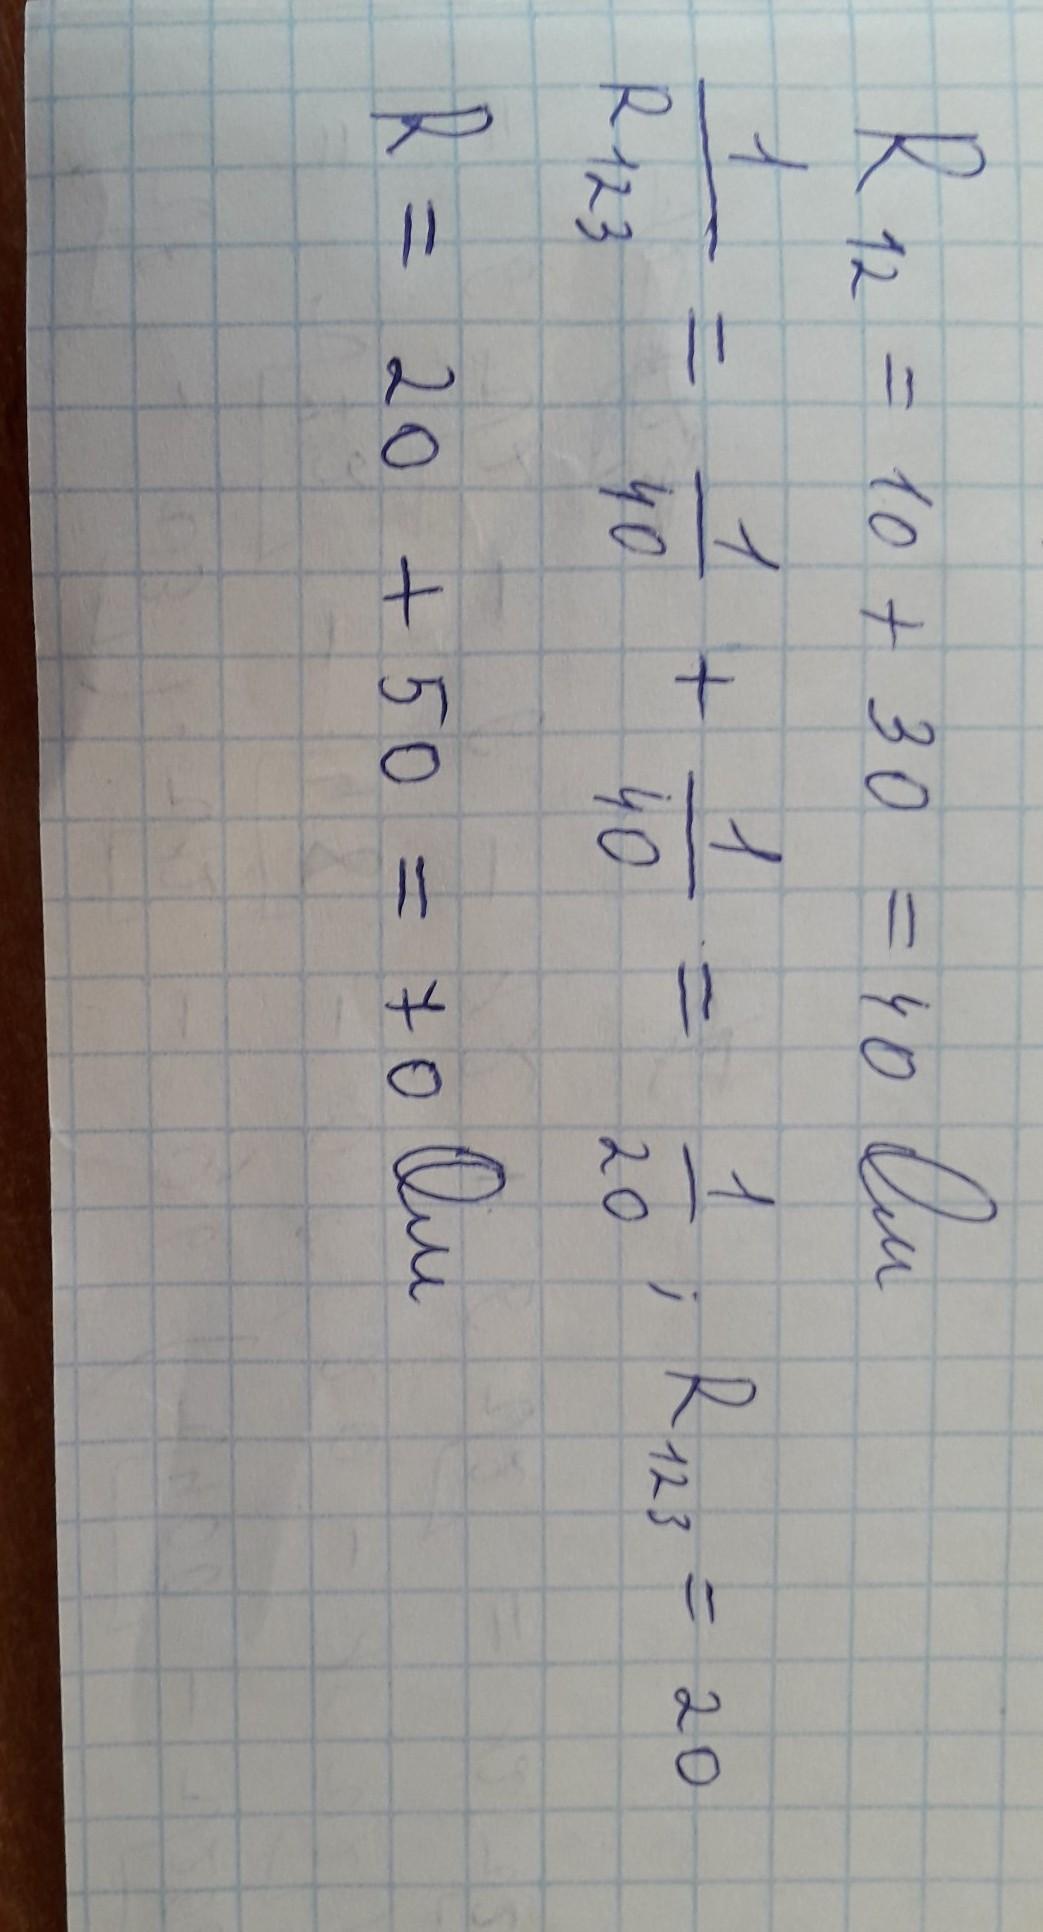 R₁₂ = 10 + 30 = 40 Ом
1/R₁₂₃ = 1/40 + 1/40 = 1/20 ; R₁₂₃ = 20
R = 20 + 50 = 70 Ом